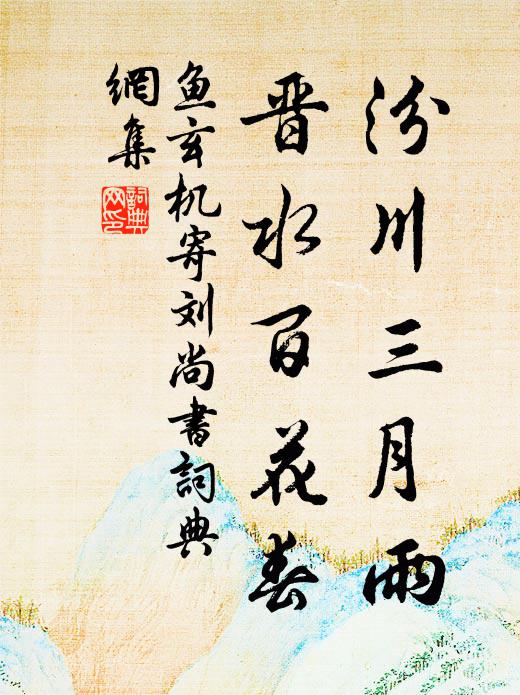 汾川三月雨
晋水百花春
鱼玄机寄刘尚书詞典
網集
詞典
网印